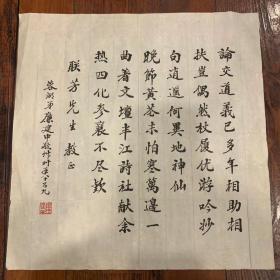 論交道義已多年相助相
扶豈偶然杖履優游吟抄
句逍遥何異地神仙
晚節黄花未怕寒萬邊一
曲着文壇丰江詩社献余
热四化参襄不尽欢
朕芳先生教正
蓉湖弟康建中敬草时年七十有九